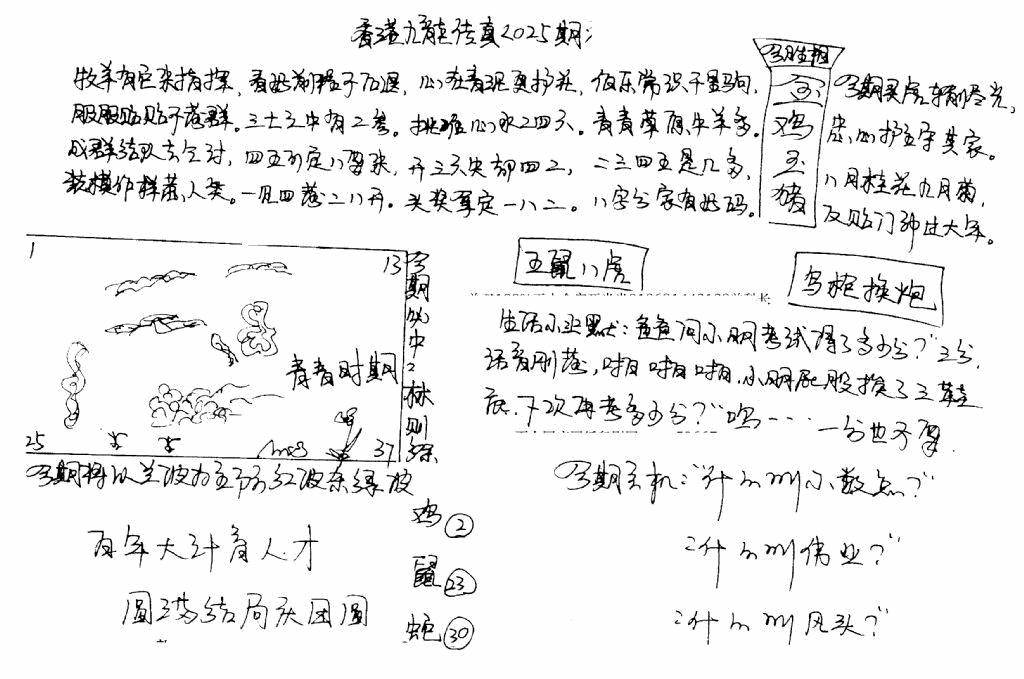 香港九龍传真2025期:
牧羊有巨朵指探,看好前程于仙退,心在青泥更护花,伯乐常识千里驹,
服服贴贴不落群。三十之中有二参。挑难心水二四六。青青草原牛羊多。
成群结队去乞讨,四五可定八要来,开三六尖部四二,二三四五是几多,
装模作样落人类。一见四落二八开。头奖尊定一八二。八字分家有好码。
今期生相
鸡
玉
猪
今期买虎
忠心护主守其家。
八月桂花九月菊,
反贴门神过大年。
1
13
青青时期
25
37
今期必中:林则徐
五鼠八虎
鸟枪换炮
生活小幽默:爸爸问小明考试得了多少分?"三分,
话音刚落,啪啪啪,小明屁股挨了三鞋
底.下次再考多少分?"呜……一分也不要
今期将以兰波为主防红波杂绿波
鸡②
鼠㉓
蛇㉚
百年大计育人才
圆满结局庆团圆
今期玄机:"什么叫小数点?"
:"什么叫伟业?"
:"什么叫风头?"